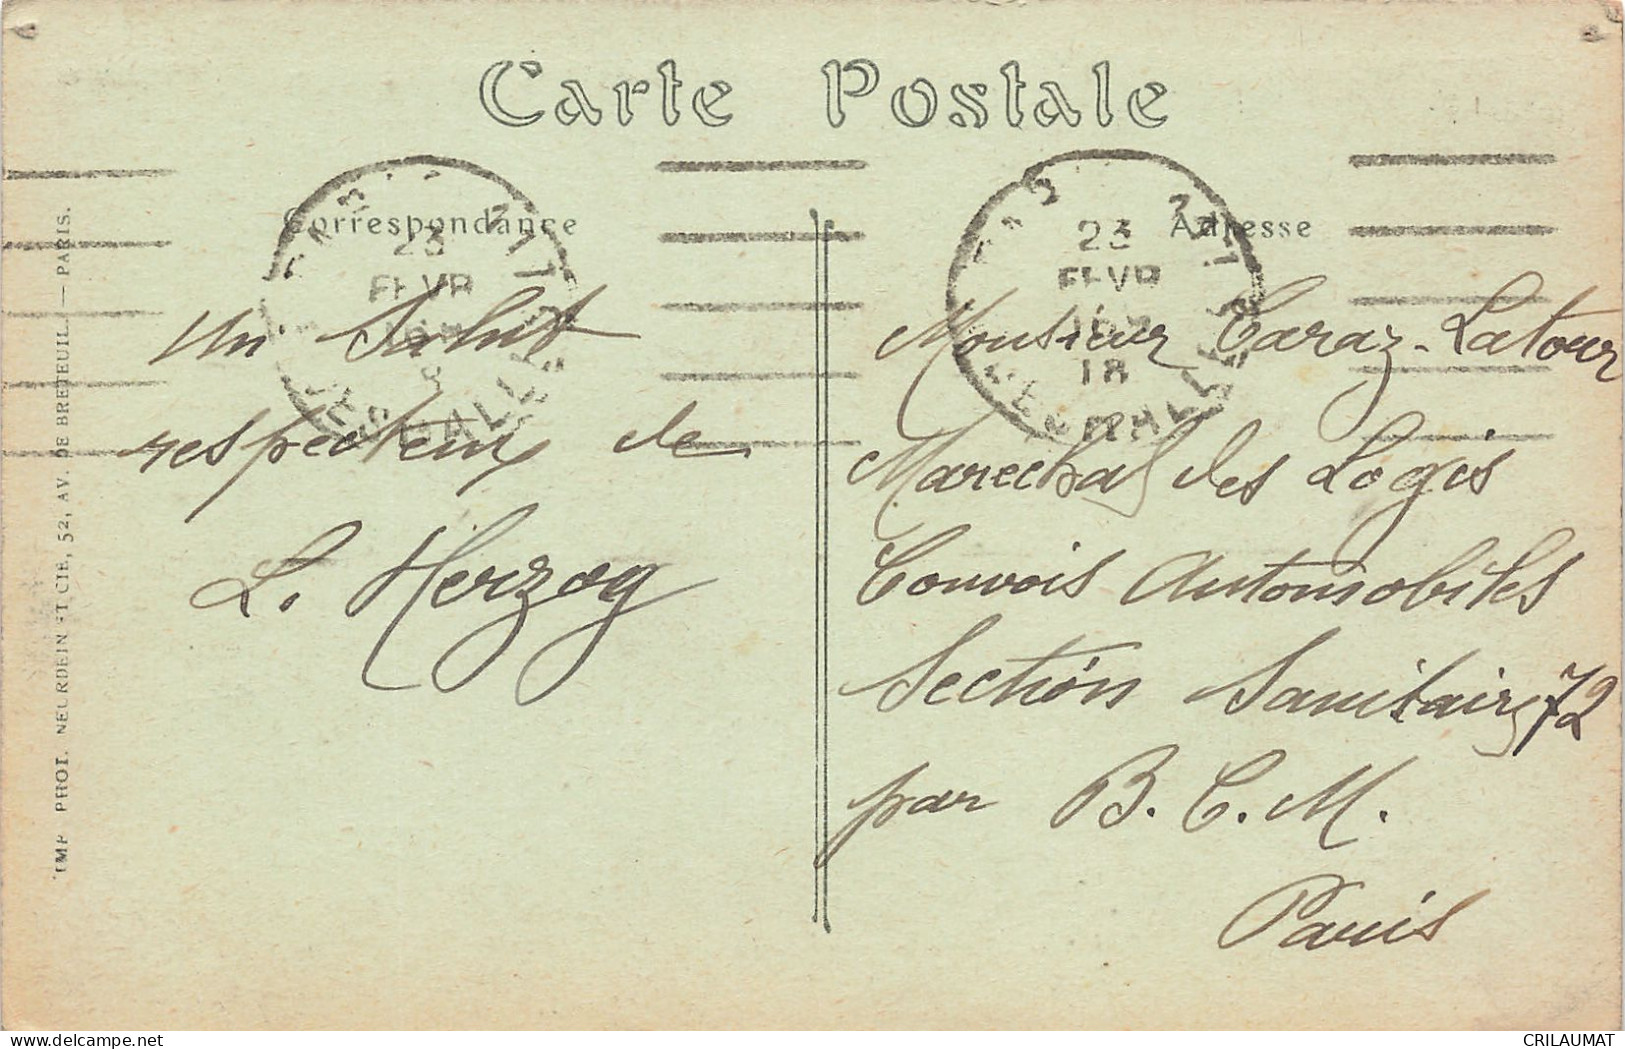 Carte Postale
Correspondance
Un Salut
respecteux de
L. Herzog
Adresse
Monsieur Caraz-Latour
Marechal des Logis
Convois Automobiles
Section Sanitaire 72
par B. C. M.
Paris
23
FEVR
18
23
FEVR
18
IMP. PHOT. NEURDEIN ET CIE, 52, AV. DE BRETEUIL. — PARIS.
delcampe.net
CRILAUMAT